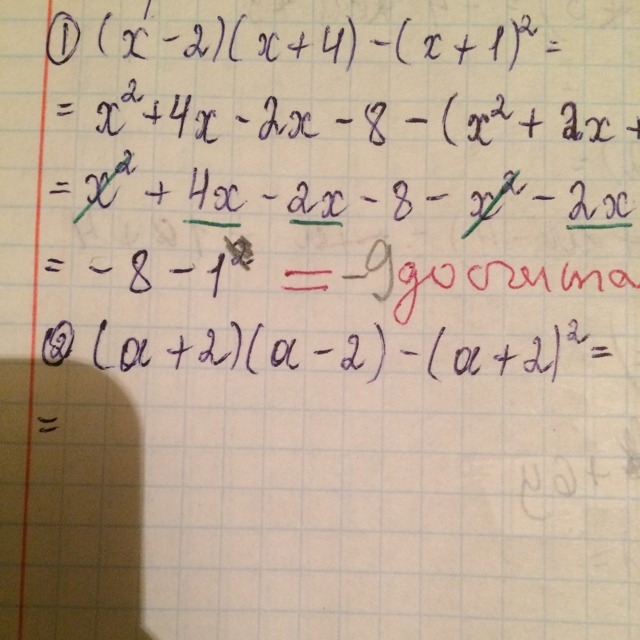 ① (x - 2)(x + 4) - (x + 1)² =
= x² + 4x - 2x - 8 - (x² + 2x +
= x² + 4x - 2x - 8 - x² - 2x
= - 8 - 1 = -9
② (a + 2)(a - 2) - (a + 2)² =
=